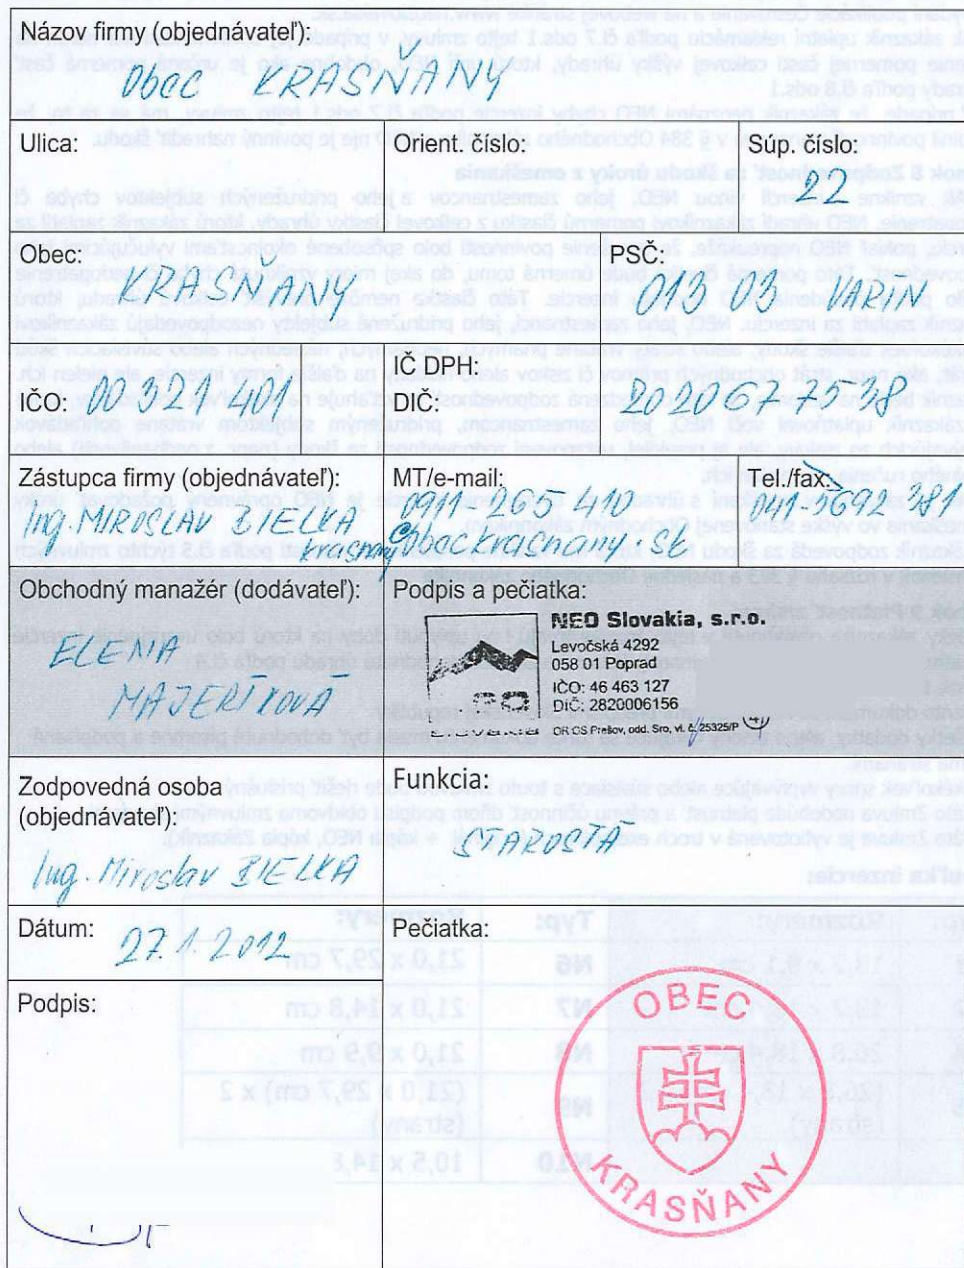 Názov firmy (objednávateľ):
Obec KRASŇANY
Ulica:
Orient. číslo:
Súp. číslo:
22
Obec:
KRASŇANY
PSČ:
013 03 VARÍN
IČO: 00 321 401
IČ DPH:
DIČ: 2020677538
Zástupca firmy (objednávateľ):
Ing. MIROSLAV BIELKA
MT/e-mail:
0911-265 410
krasnany@obeckrasnany.sk
Tel./fax:
041-5692381
Obchodný manažér (dodávateľ):
ELENA
MAJERÍKOVÁ
Podpis a pečiatka:
NEO Slovakia, s.r.o.
Levočská 4292
058 01 Poprad
IČO: 46 463 127
DIČ: 2820006156
OR OS Prešov, odd. Sro, vl. č. 25325/P
Zodpovedná osoba
(objednávateľ):
Ing. Miroslav BIELKA
Funkcia:
STAROSTA
Dátum: 27.1.2012
Pečiatka:
Podpis:
OBEC
KRASŇANY